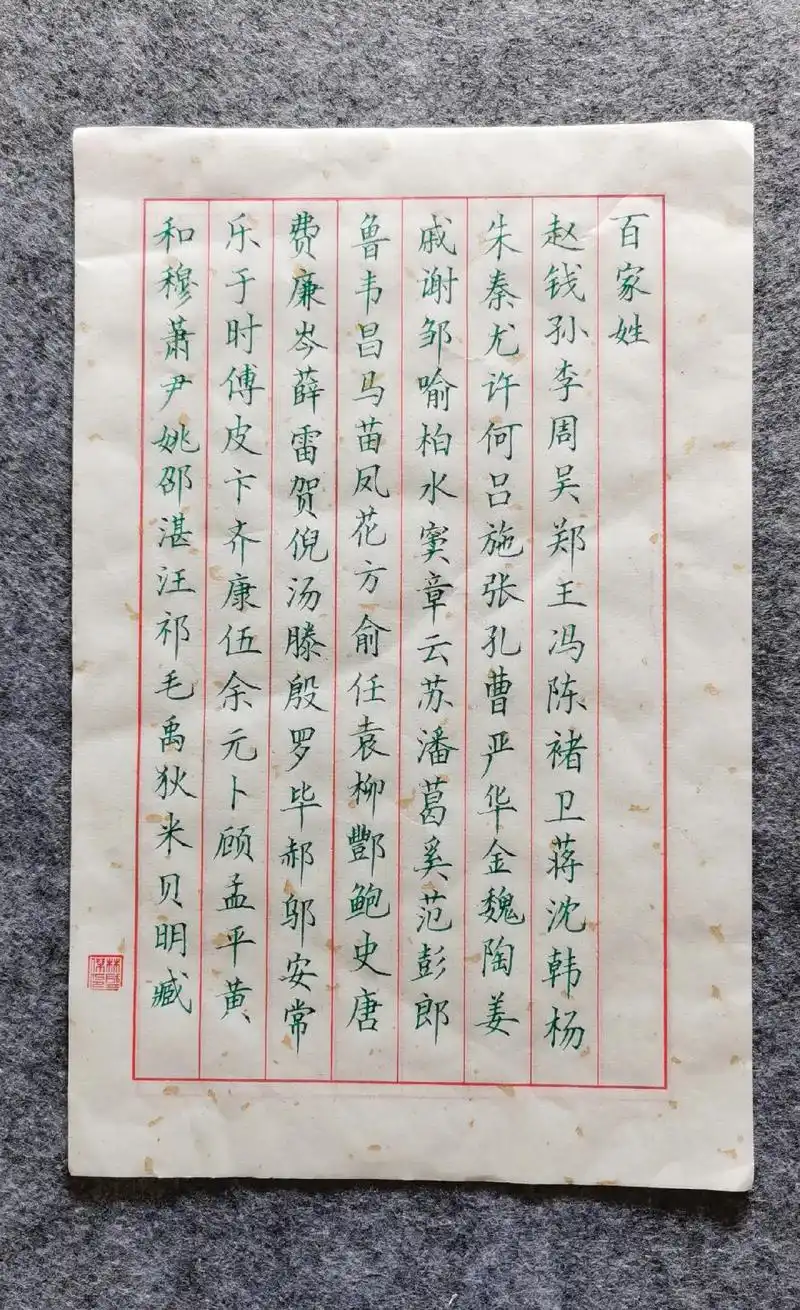 百家姓
赵钱孙李周吴郑王冯陈褚卫蒋沈韩杨
朱秦尤许何吕施张孔曹严华金魏陶姜
戚谢邹喻柏水窦章云苏潘葛奚范彭郎
鲁韦昌马苗凤花方俞任袁柳酆鲍史唐
费廉岑薛雷贺倪汤滕殷罗毕郝邬安常
乐于时傅皮卞齐康伍余元卜顾孟平黄
和穆萧尹姚邵湛汪祁毛禹狄米贝明臧